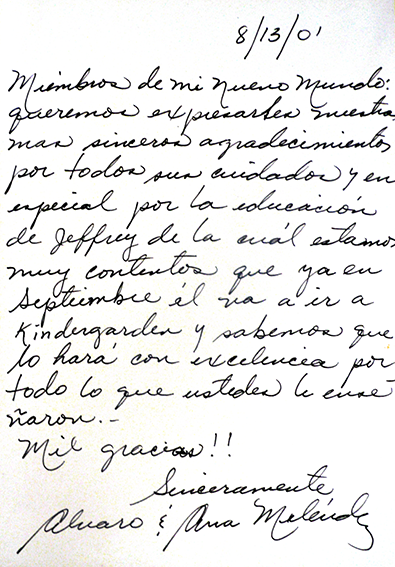 8/13/01
Miembros de mi Nuevo Mundo:
queremos expresarles nuestros
mas sinceros agradecimientos
por todos sus cuidados y en
especial por la educación
de Jeffrey de la cuál estamos
muy contentos que ya en
Septiembre él va a ir a
Kindergarden y sabemos que
lo hará con excelencia por
todo lo que ustedes le ense-
ñaron.-
Mil gracias!!
Sinceramente
Alvaro & Ana Meléndez